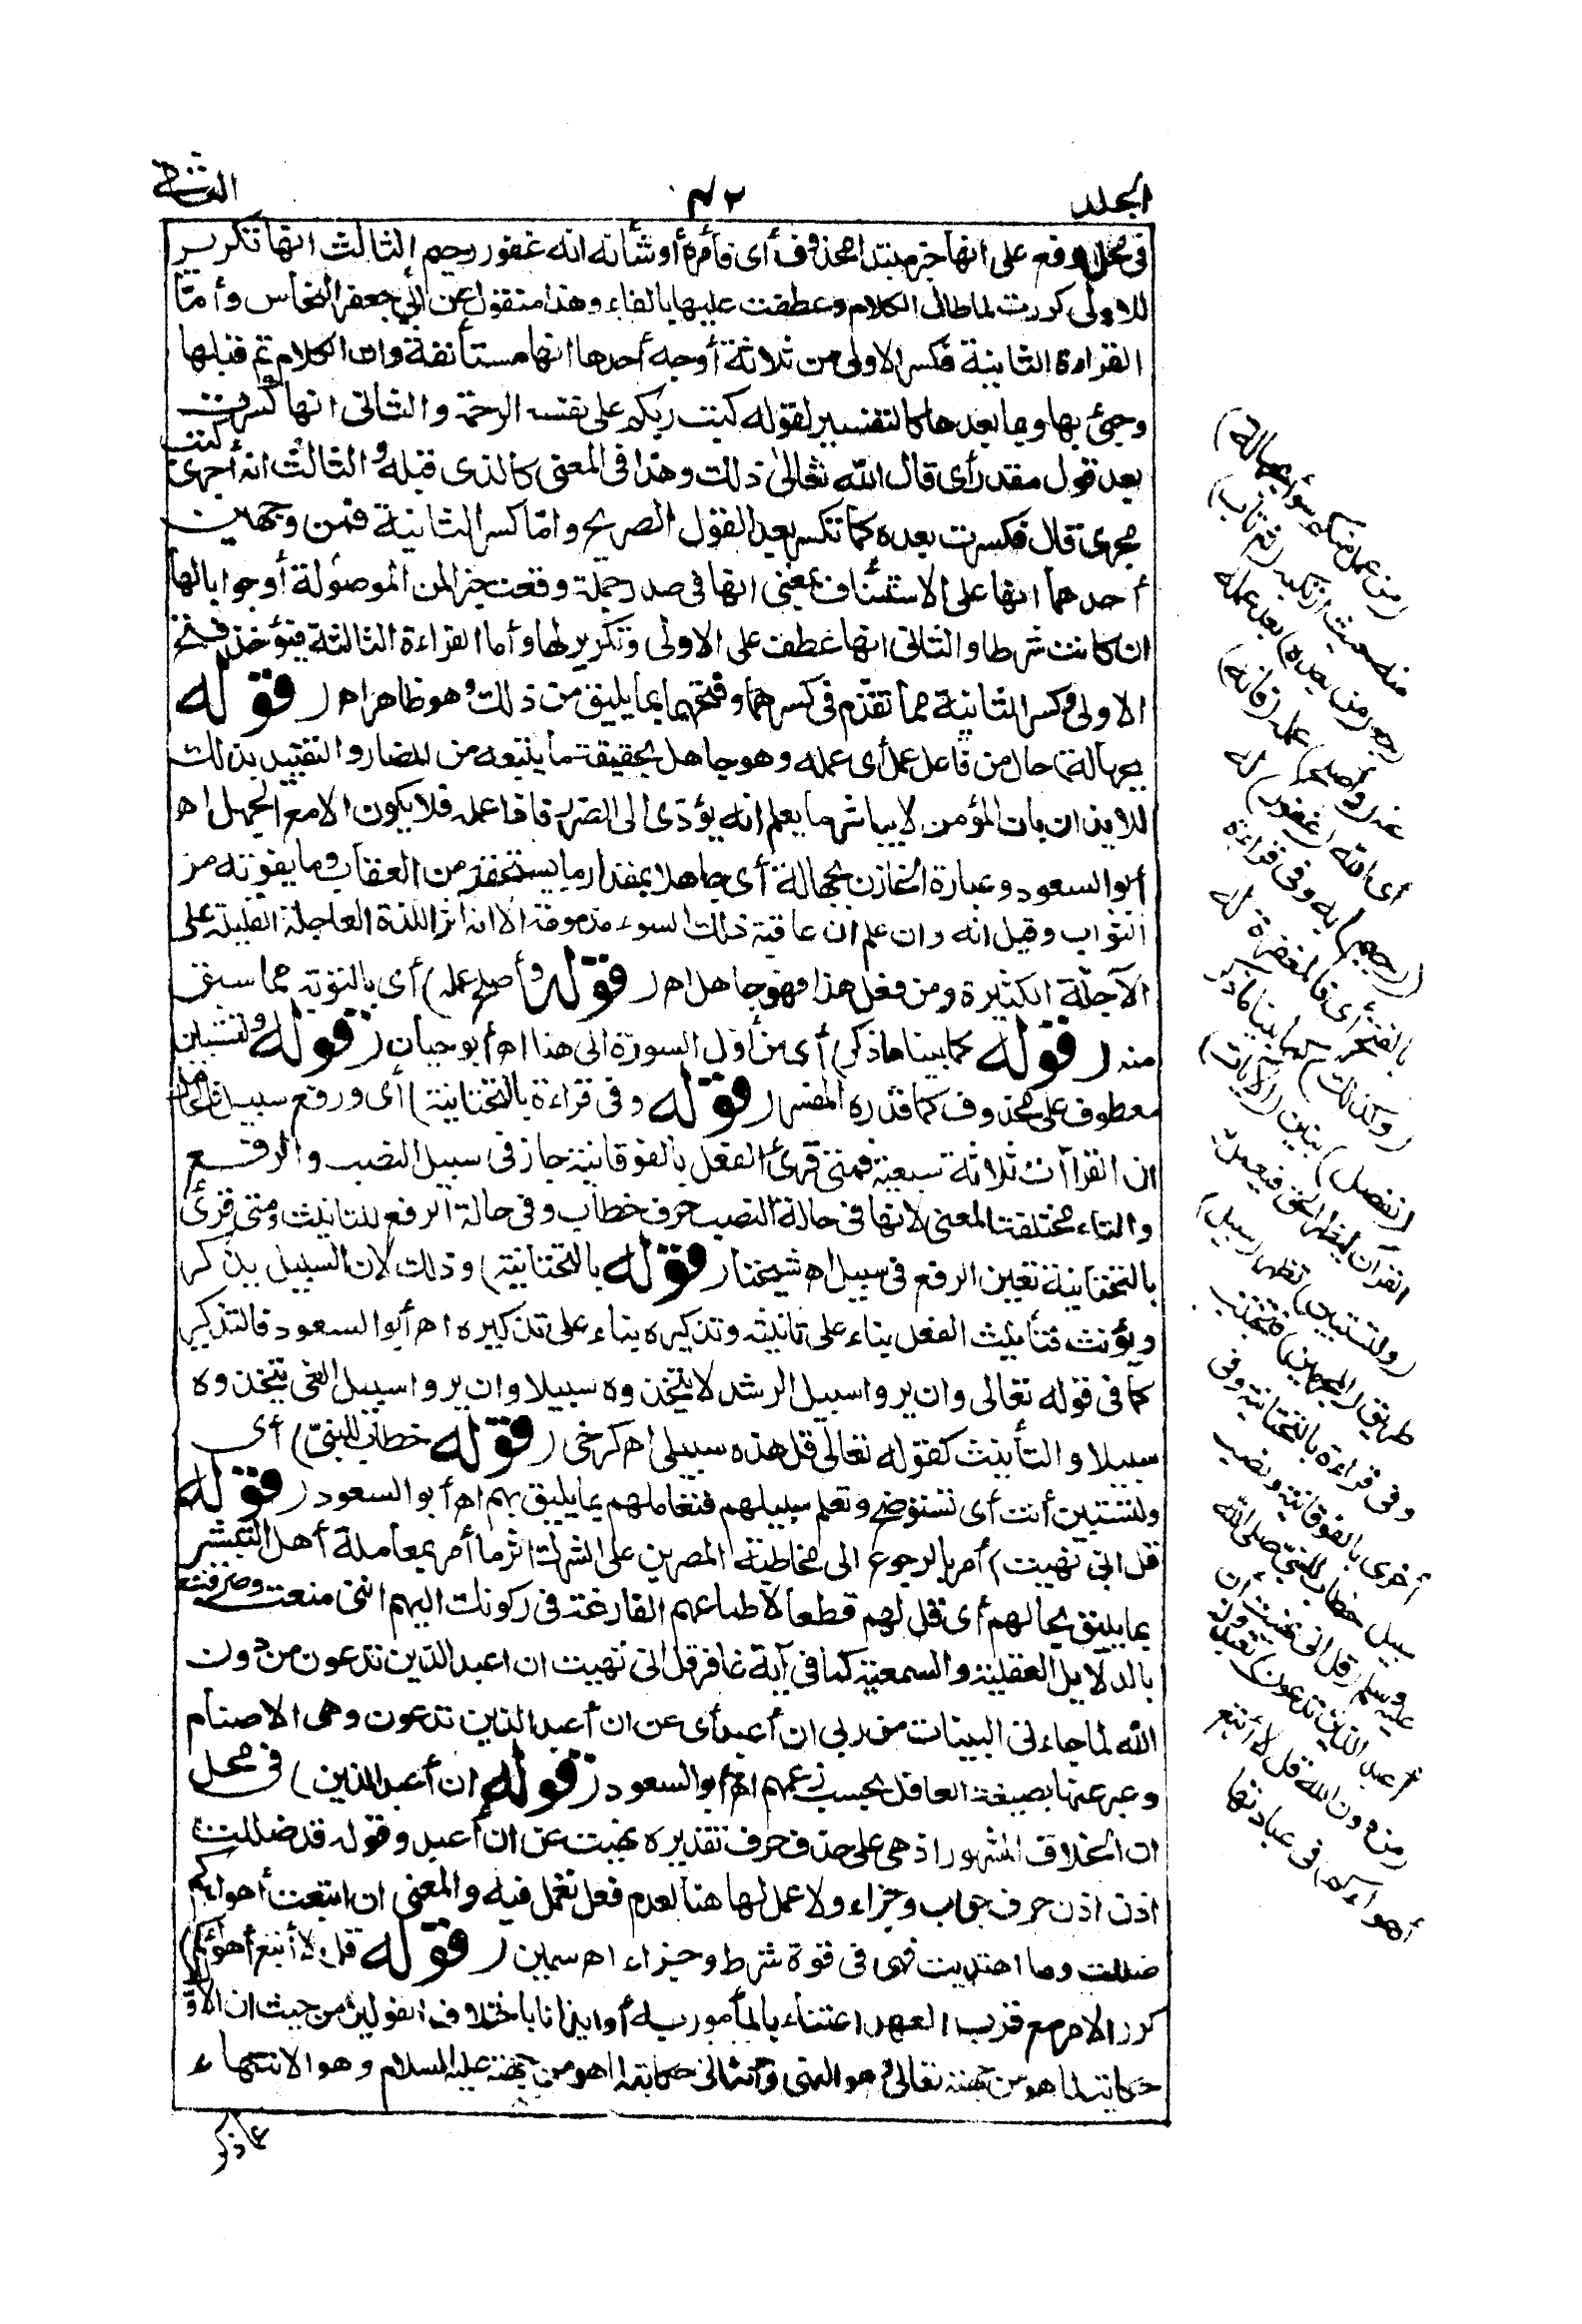 المجلد
٤٢
الثانى
فى محل رفع على انها خبر مبتدا محذوف أى فأمره أو شأنه انه غفور رحيم الثالث انها تكرير
للاولى كررت لما طال الكلام وعطفت عليها بالفاء وهذا منقول عن أبي جعفر النحاس وأمّا
القراءة الثانية فكسر الاولى من ثلاثة أوجه أحدها انها مستأنفة وان الكلام تم قبلها
وجىء بها وبما بعدها كالتفسير لقوله كتب ربكم على نفسه الرحمة والثانى انها كسرت
بعد قول مقدر أى قال الله تعالى ذلك وهذا فى المعنى كالذى قبله والثالث انه أجرى كتب
مجرى قال فكسرت بعده كما تكسر بعد القول الصريح واما كسر الثانية فمن وجهين
أحدهما انها على الاستئناف بمعنى انها فى صدر جملة وقعت خبرا لمن الموصولة أو جوابا لها
ان كانت شرطا والثانى انها عطف على الاولى وتكرير لها وأما القراءة الثالثة فيؤخذ فتح
الاولى وكسر الثانية مما تقدّم فى كسرهما وفتحهما بما يليق من ذلك وهو ظاهر اهـ (قوله
بجهالة) حال من فاعل عمل أى عمله وهو جاهل بحقيقة ما يتبعه من المضار والتقييد بذلك
للايذان بان المؤمن لا يباشر ما يعلم انه يؤدى الى الضرر فاذا عمله فلا يكون الا مع الجهل اهـ
أبو السعود وعبارة الخازن بجهالة أى جاهلا بمقدار ما يستحقه من العقاب وما يفوته من
الثواب وقيل انه وان علم ان عاقبة ذلك السوء مذمومة الا انه آثر اللذة العاجلة القليلة على
الآجلة الكثيرة ومن فعل هذا فهو جاهل اهـ (قوله وأصلح عمله) أى بالتوبة مما سبق
منه (قوله كما بينا ما ذكر) أى من أول السورة الى هنا اهـ أبو حيان (قوله ولتستبين
معطوف على محذوف كما قدره المفسر (قوله وفى قراءة بالتحتانية) أى ورفع سبيل فاعلم
ان القراآت ثلاثة سبعية فمتى قرئ الفعل بالفوقانية جاز فى سبيل النصب والرفع
والتاء مختلفة المعنى لانها فى حالة النصب حرف خطاب وفى حالة الرفع للتانيث ومتى قرئ
بالتحتانية تعين الرفع فى سبيل اهـ شيخنا (قوله بالتحتانية) وذلك لان السبيل يذكر
ويؤنث فتأنيث الفعل بناء على تانيثه وتذكيره بناء على تذكيره اهـ أبو السعود فالتذكير
كما فى قوله تعالى وان يروا سبيل الرشد لا يتخذوه سبيلا وان يروا سبيل الغى يتخذوه
سبيلا والتأنيث كقوله تعالى قل هذه سبيلى اهـ كرخى (قوله خطاب للنبىّ) أى
ولتستبين أنت أى تستوضح وتعلم سبيلهم فتعاملهم بما يليق بهم اهـ أبو السعود (قوله
قل انى نهيت) أمر بالرجوع الى مخاطبة المصرين على الشرك اثر ما أمر بمعاملة أهل التبشير
بما يليق بحالهم أى قل لهم قطعا لأطماعهم الفارغة فى ركونك اليهم اننى منعت وصرفت
بالدلايل العقلية والسمعية كما فى آية غافر قل انى نهيت ان اعبد الذين تدعون من دون
الله لما جاءنى البينات من ربى ان أعبد أى عن ان أعبد الذين تدعون وهى الاصنام
وعبر عنها بصيغة العاقل بحسب زعمهم اهـ أبو السعود (قوله ان أعبد الذين) فى محل
ان الخلاف المشهور اذ هى على حذف حرف تقديره نهيت عن ان أعبد وقوله قد ضللت
اذن اذن حرف جواب وجزاء ولا عمل لها هنا لعدم فعل تعمل فيه والمعنى ان اتبعت أهواءكم
ضللت وما اهتديت فهى فى قوة شرط وجزاء اهـ سمين (قوله قل لا أتبع أهواءكم)
كرر الامر مع قرب العهد اعتناء بالمأمور به أو ايذانا باختلاف القولين من حيث ان الاوّل
حكاية لما هو من جهته تعالى وهو النهى والثانى حكاية لما هو من جهته عليه السلام وهو الانتهاء
عما ذكر
(من عمل منكم سوأ بجهالة)
منه حيث ارتكبه (ثم تاب)
رجع (من بعده) بعد عمله
عنه (وأصلح) عمله (فانه)
أى الله (غفور) له
(رحيم) به وفى قراءة
بالفتح أى فالمغفرة له
(وكذلك) كما بينا ما ذكر
(نفصل) نبين (الآيات)
القرآن ليظهر الحق فيعمل به
(ولتستبين) تظهر (سبيل)
طريق (المجرمين) فتجتنب
وفى قراءة بالتحتانية وفى
أخرى بالفوقانية ونصب
سبيل خطاب للنبىّ صلى الله
عليه وسلم (قل انى نهيت أن
أعبد الذين تدعون) تعبدون
(من دون الله قل لا أتبع
أهواءكم) فى عبادتها